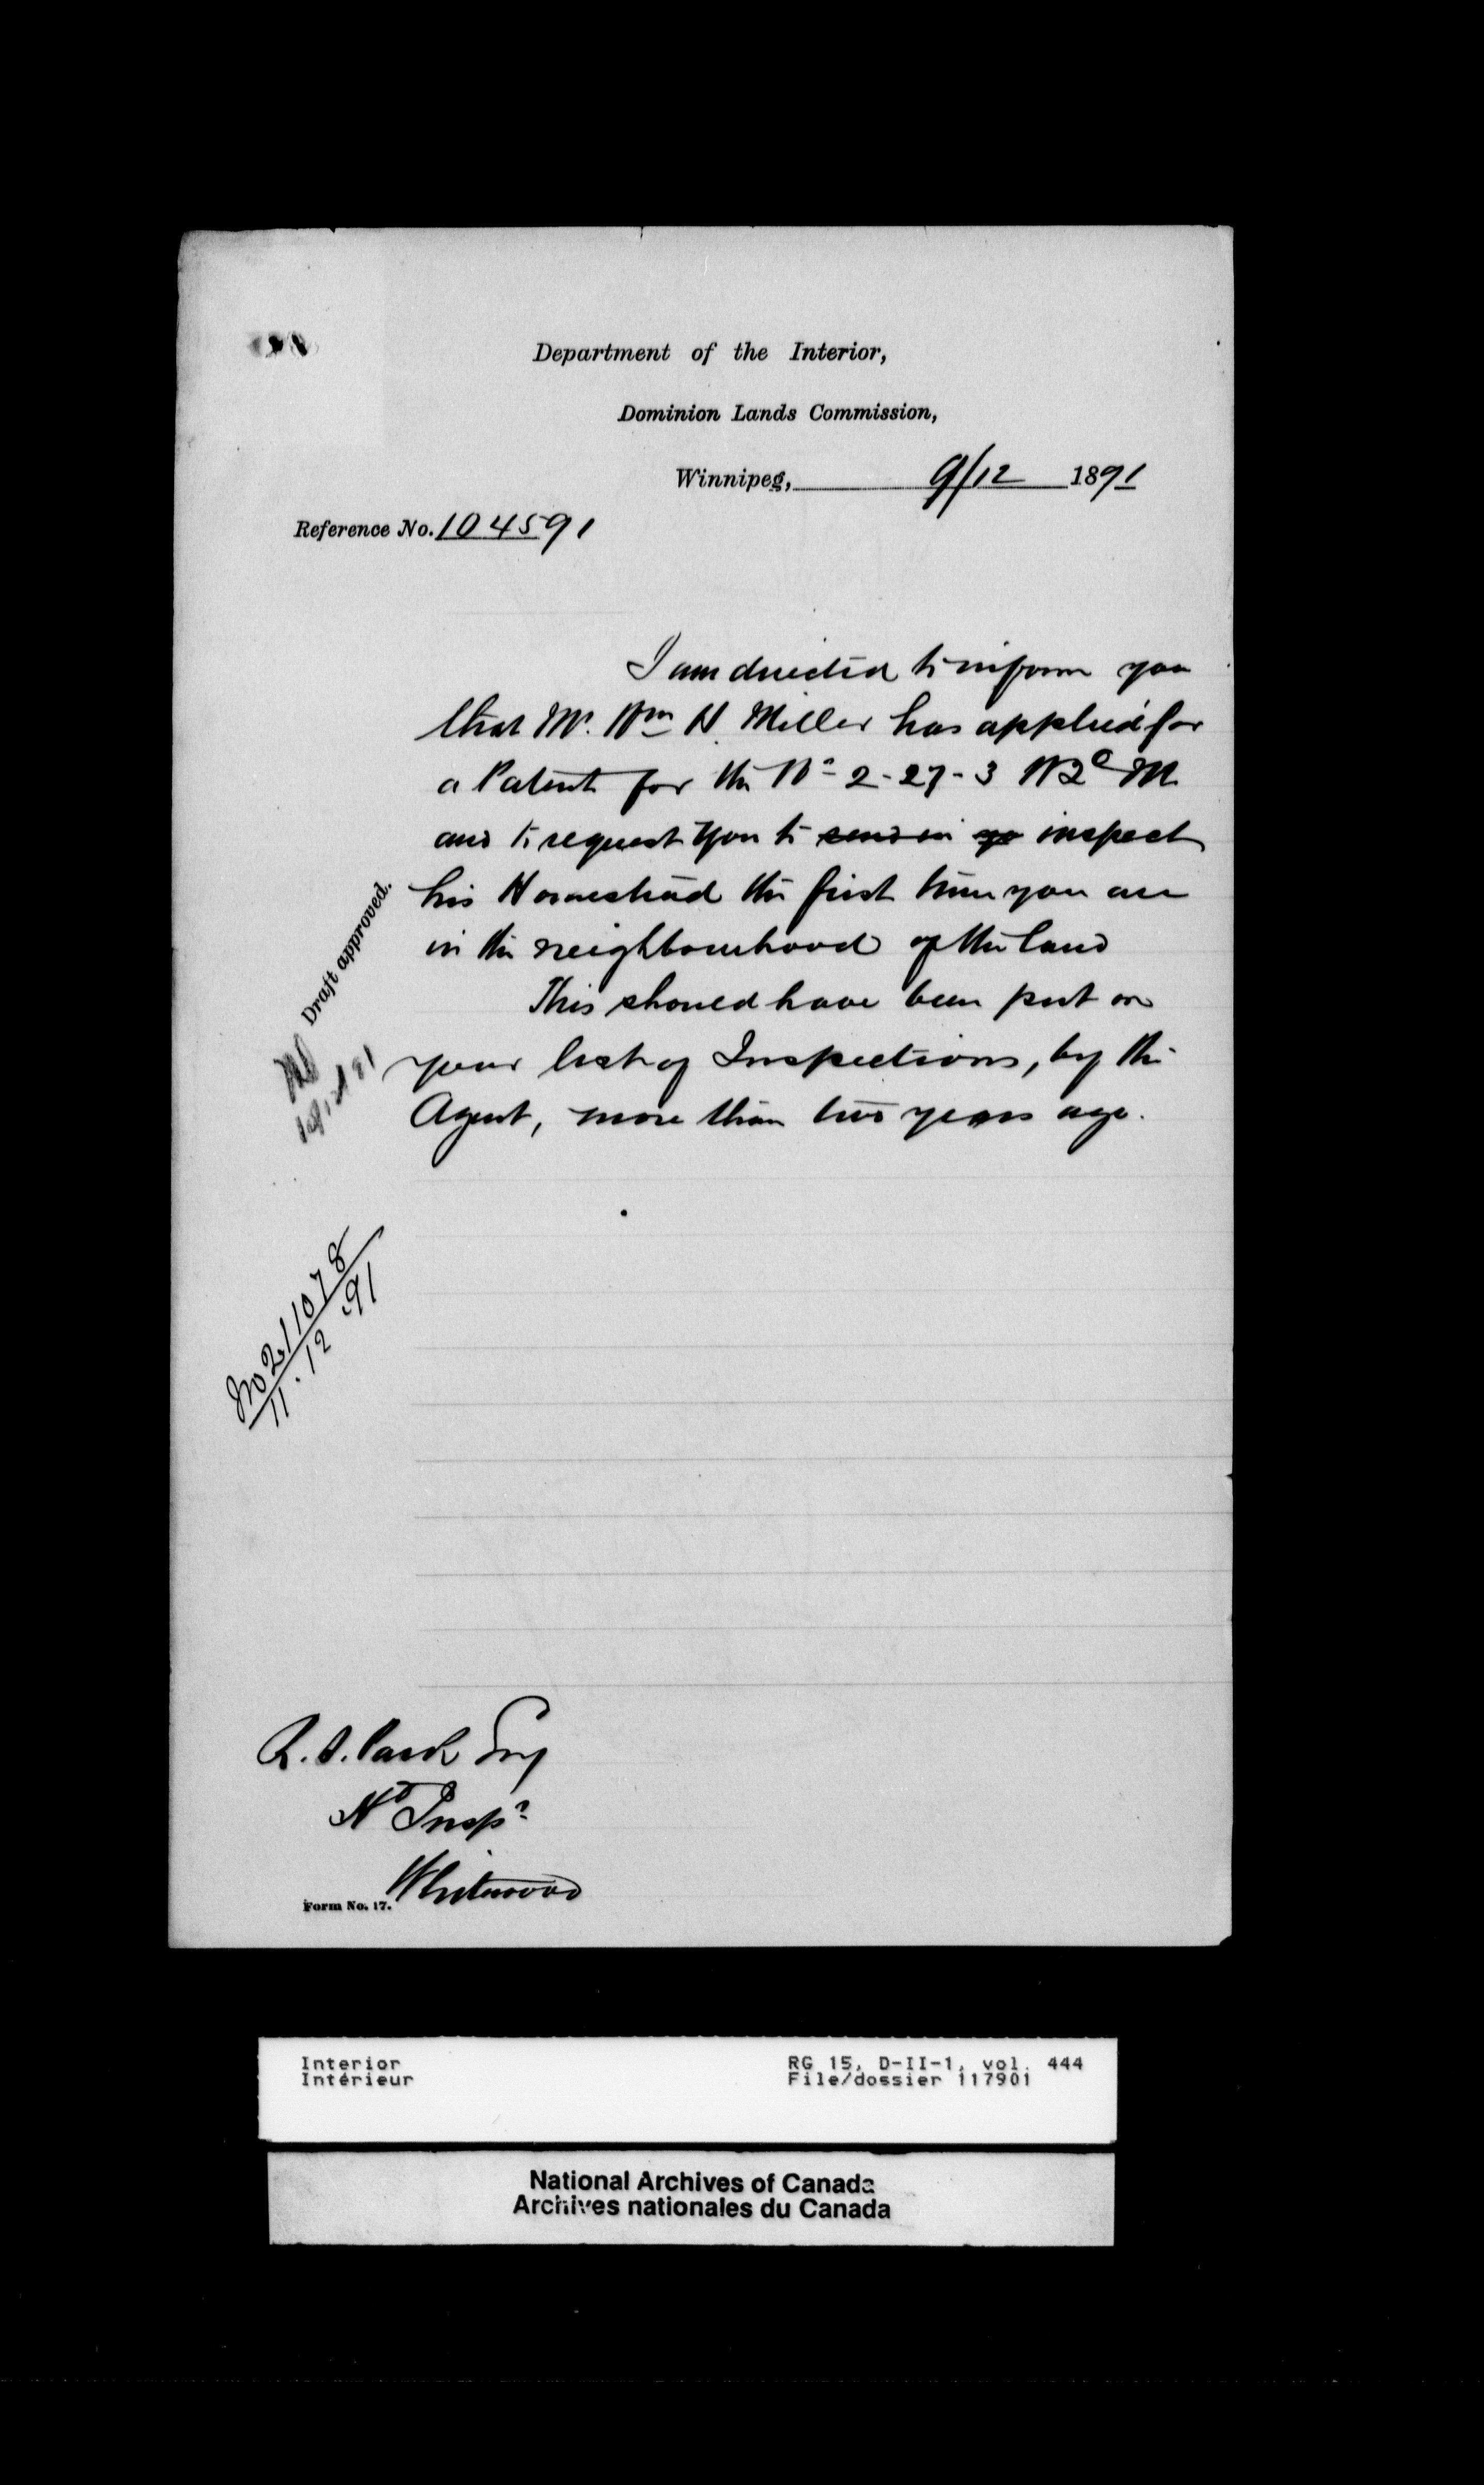 Department of the Interior,
Dominion Lands Commission,
Winnipeg, 9/12 1891
Reference No. 104591
I am directed to inform you
that Mr. Wm H. Miller has applied for
a Patent for the 2-27-3 W2d M
and to request you to send in inspect
his Homestead the first time you are
in the neighbourhood of the land
This should have been put on
your list of Inspections, by the
Agent, more than two years ago.
Draft approved.
No 211078
11.12.91
R.S. Park Esq
Hd Inspr
Whitewood
Form No. 17.
Interior
Intérieur
RG 15, D-II-1, vol. 444
File/dossier 117901
National Archives of Canada
Archives nationales du Canada